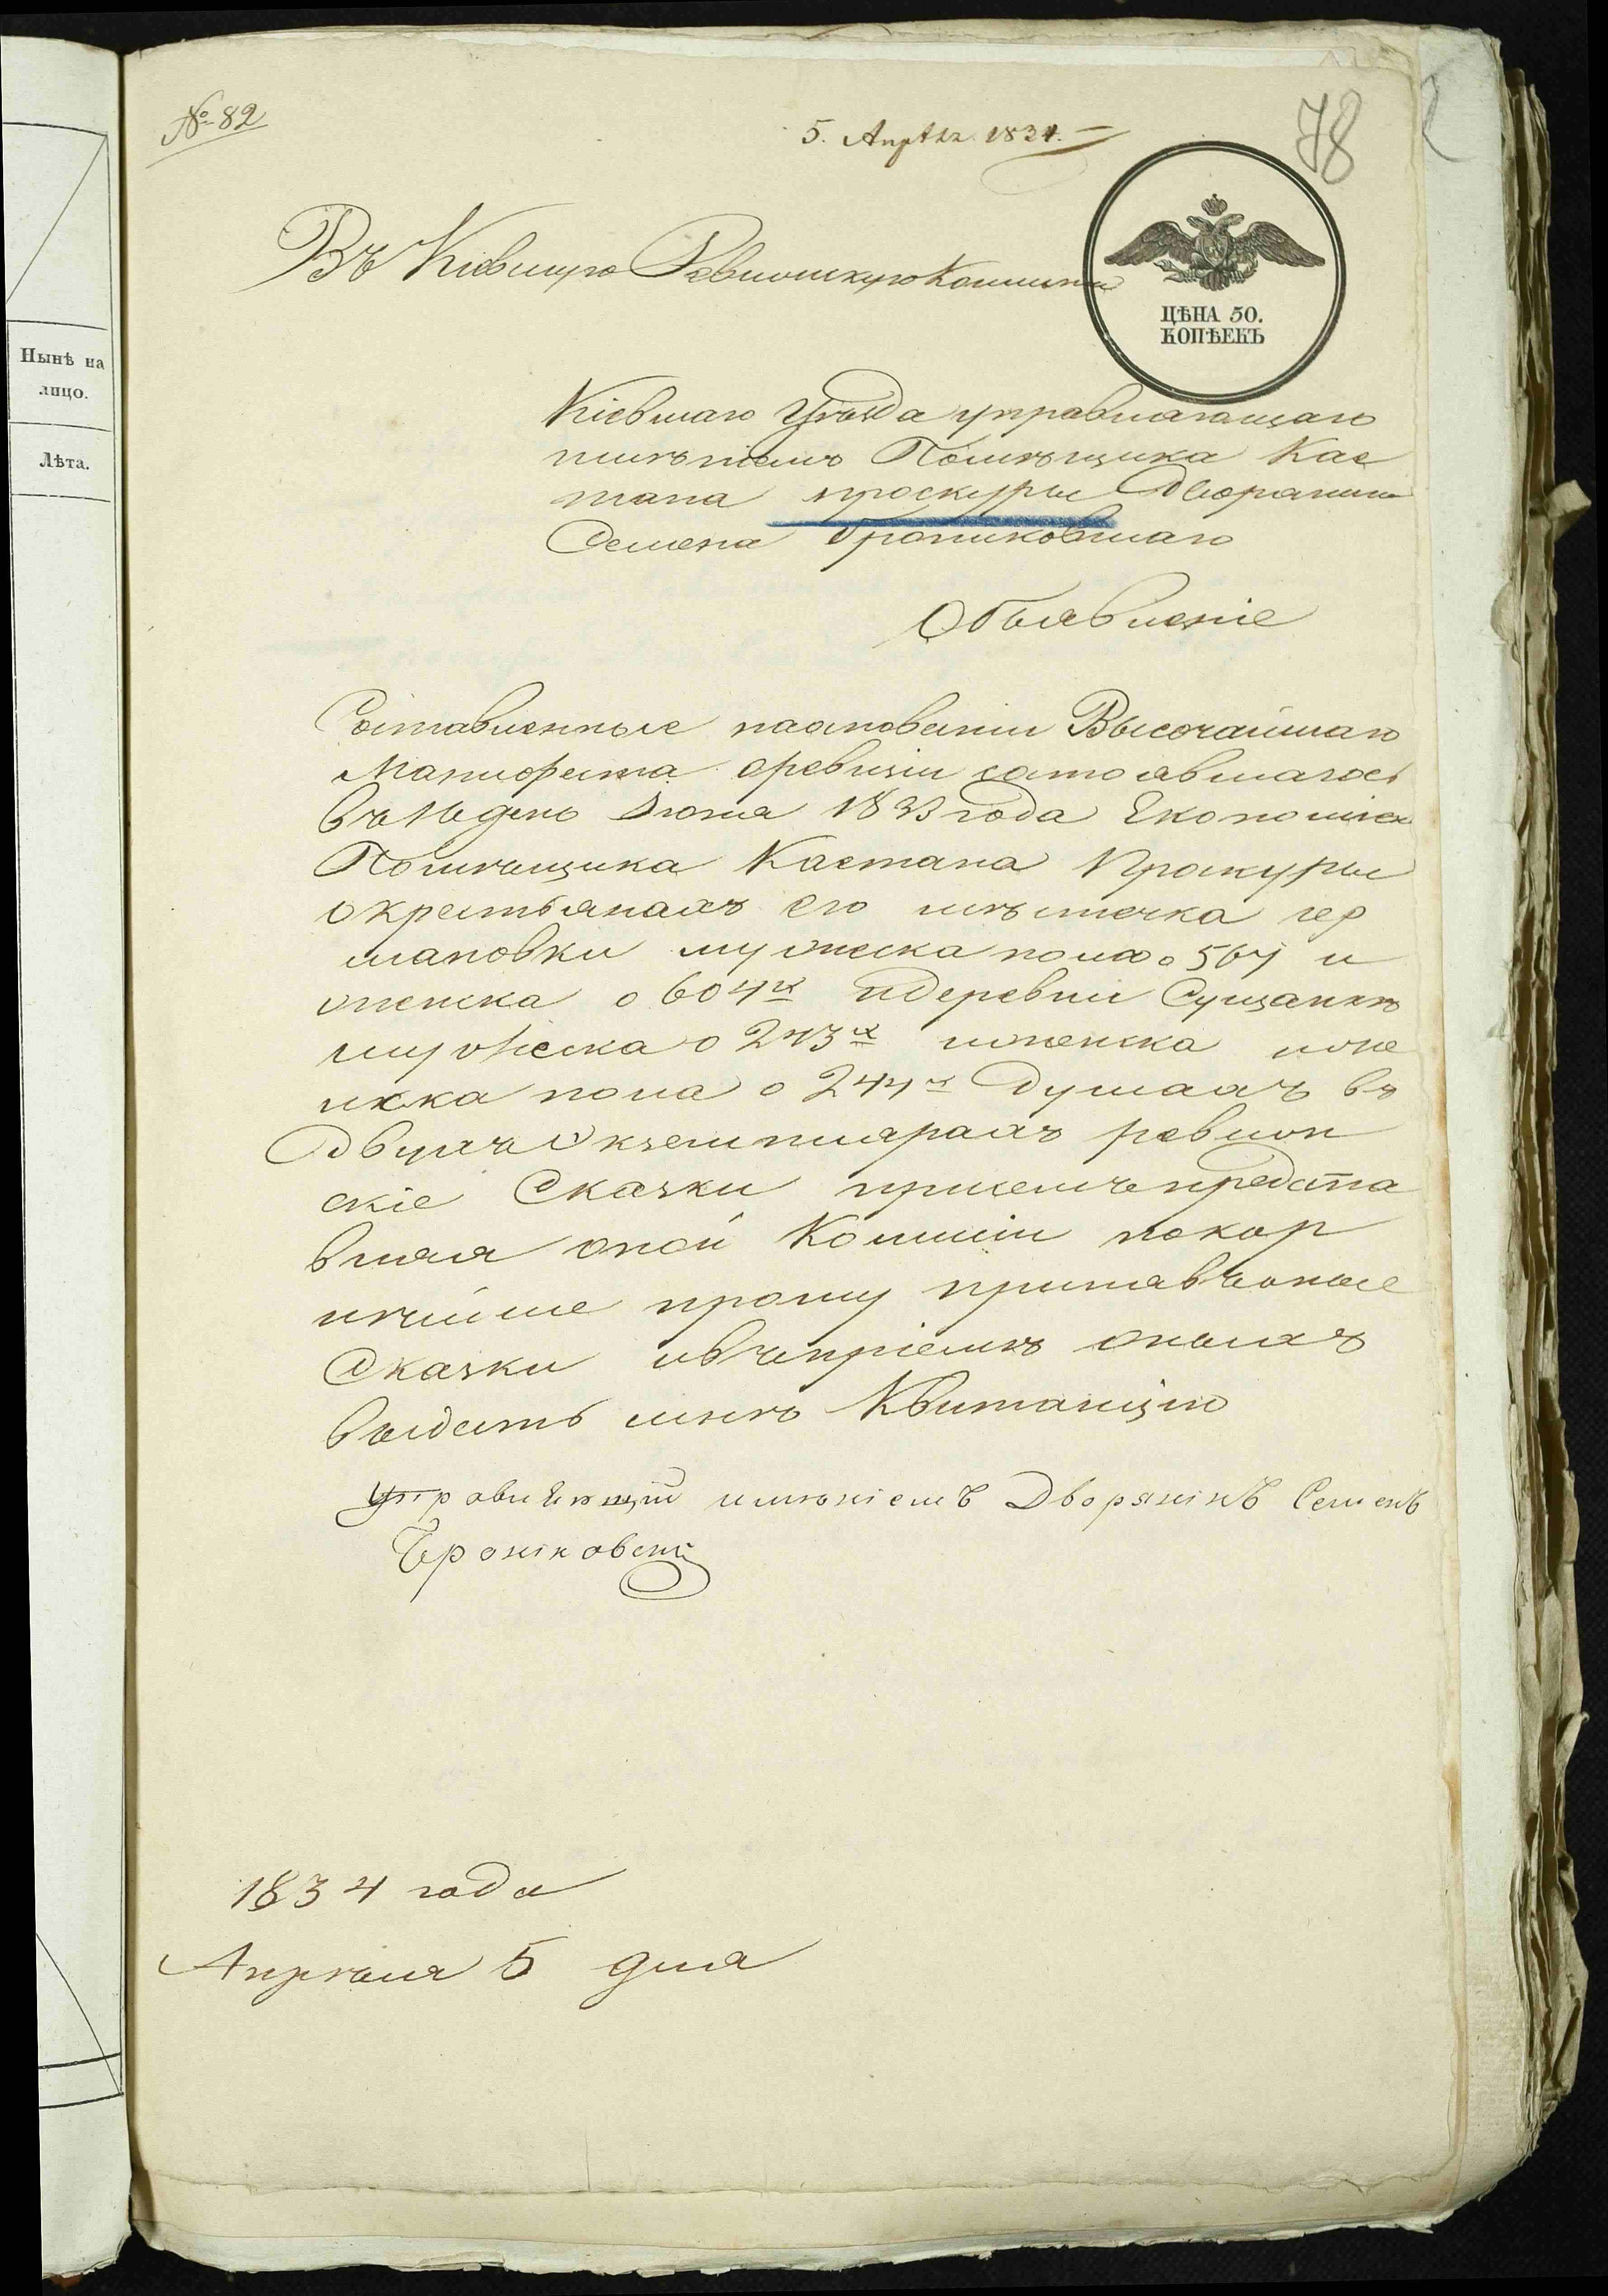 № 82
5. Апрѣля 1834.
78
Въ Кіевскую Ревизскую Коммисію
ЦѢНА 50.
КОПѢЕКЪ
Нынѣ на
лицо.
Лѣта.
Кіевскаго Уѣзда управляющаго
имѣніемъ Помѣщика Кае
тана Проскуры Дворянина
Семена Брониковскаго
Объявленіе
Составленные наосновании Высочайшаго
Манифеста оревизіи состоявшагось
въ 16 день Июня 1833 года Економіею
Помѣщика Каетана Проскуры
окрестьянахъ его мѣстечка гер
мановки мужеска пола о 567 и
женска о 604х идеревни Сущанкѣ
мужеска о 243х иженска
пола о 244х Душахъ въ
Двухъ Екземплярахъ ревизн
скіе Сказки присемъ предста
вляя оной Комисіи покор
нѣйше прошу принявъ оные
Сказки ивъ пріемѣ оныхъ
выдать мнѣ Квитанцію
Управляющій имѣніемъ Дворянінъ Семенъ
Броніковскі
1834 года
Апрѣля 5 дня